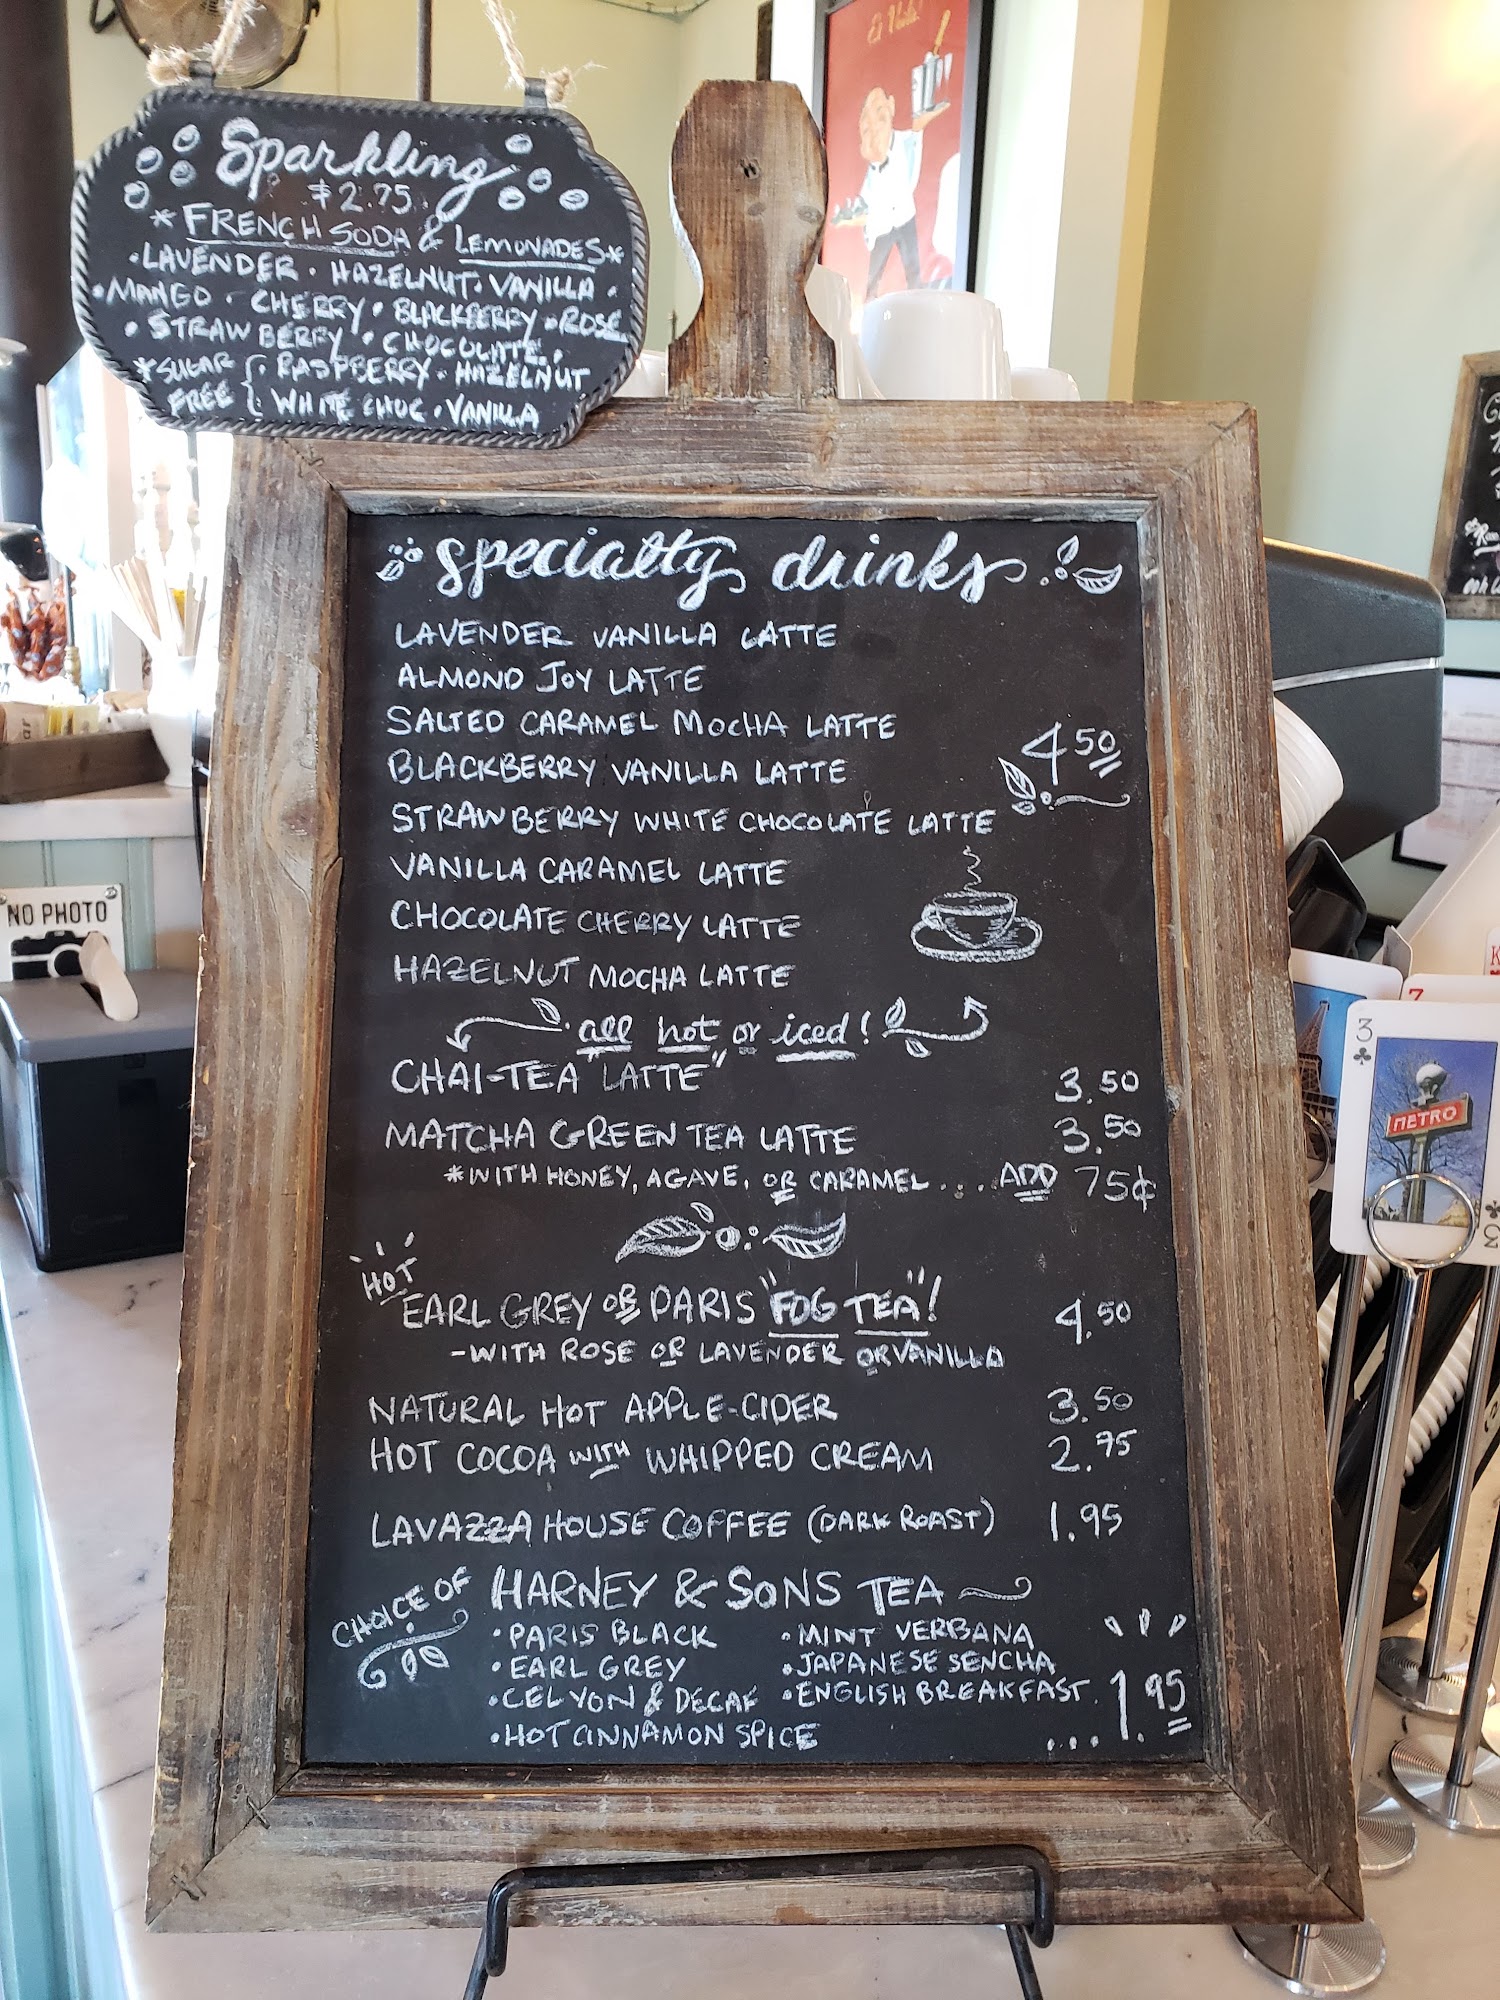 Et Voila!
Sparkling
$2.75
*FRENCH SODA & LEMONADES*
•LAVENDER • HAZELNUT • VANILLA •
•MANGO • CHERRY • BLACKBERRY • ROSE
• STRAWBERRY • CHOCOLATE •
*SUGAR FREE { • RASPBERRY • HAZELNUT
• WHITE CHOC • VANILLA
specialty drinks
LAVENDER VANILLA LATTE
ALMOND JOY LATTE
SALTED CARAMEL MOCHA LATTE
4 50
BLACKBERRY VANILLA LATTE
STRAWBERRY WHITE CHOCOLATE LATTE
VANILLA CARAMEL LATTE
CHOCOLATE CHERRY LATTE
HAZELNUT MOCHA LATTE
all hot or iced!
CHAI-TEA "LATTE" 3.50
MATCHA GREEN TEA LATTE 3.50
*WITH HONEY, AGAVE, OR CARAMEL.... ADD 75¢
HOT
EARL GREY OR PARIS "FOG TEA"! 4.50
-WITH ROSE OR LAVENDER OR VANILLA
NATURAL HOT APPLE-CIDER 3.50
HOT COCOA WITH WHIPPED CREAM 2.75
LAVAZZA HOUSE COFFEE (DARK ROAST) 1.95
CHOICE OF HARNEY & SONS TEA
•PARIS BLACK •MINT VERBANA
•EARL GREY •JAPANESE SENCHA
•CELYON & DECAF •ENGLISH BREAKFAST
•HOT CINNAMON SPICE ...1.95
NO PHOTO
7
3
METRO
3
K